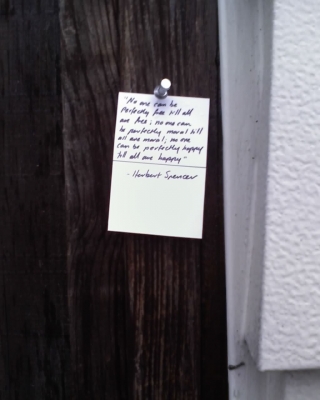 "No one can be
perfectly free till all
are free; no one can
be perfectly moral till
all are moral; no one
can be perfectly happy
till all are happy"
- Herbert Spencer